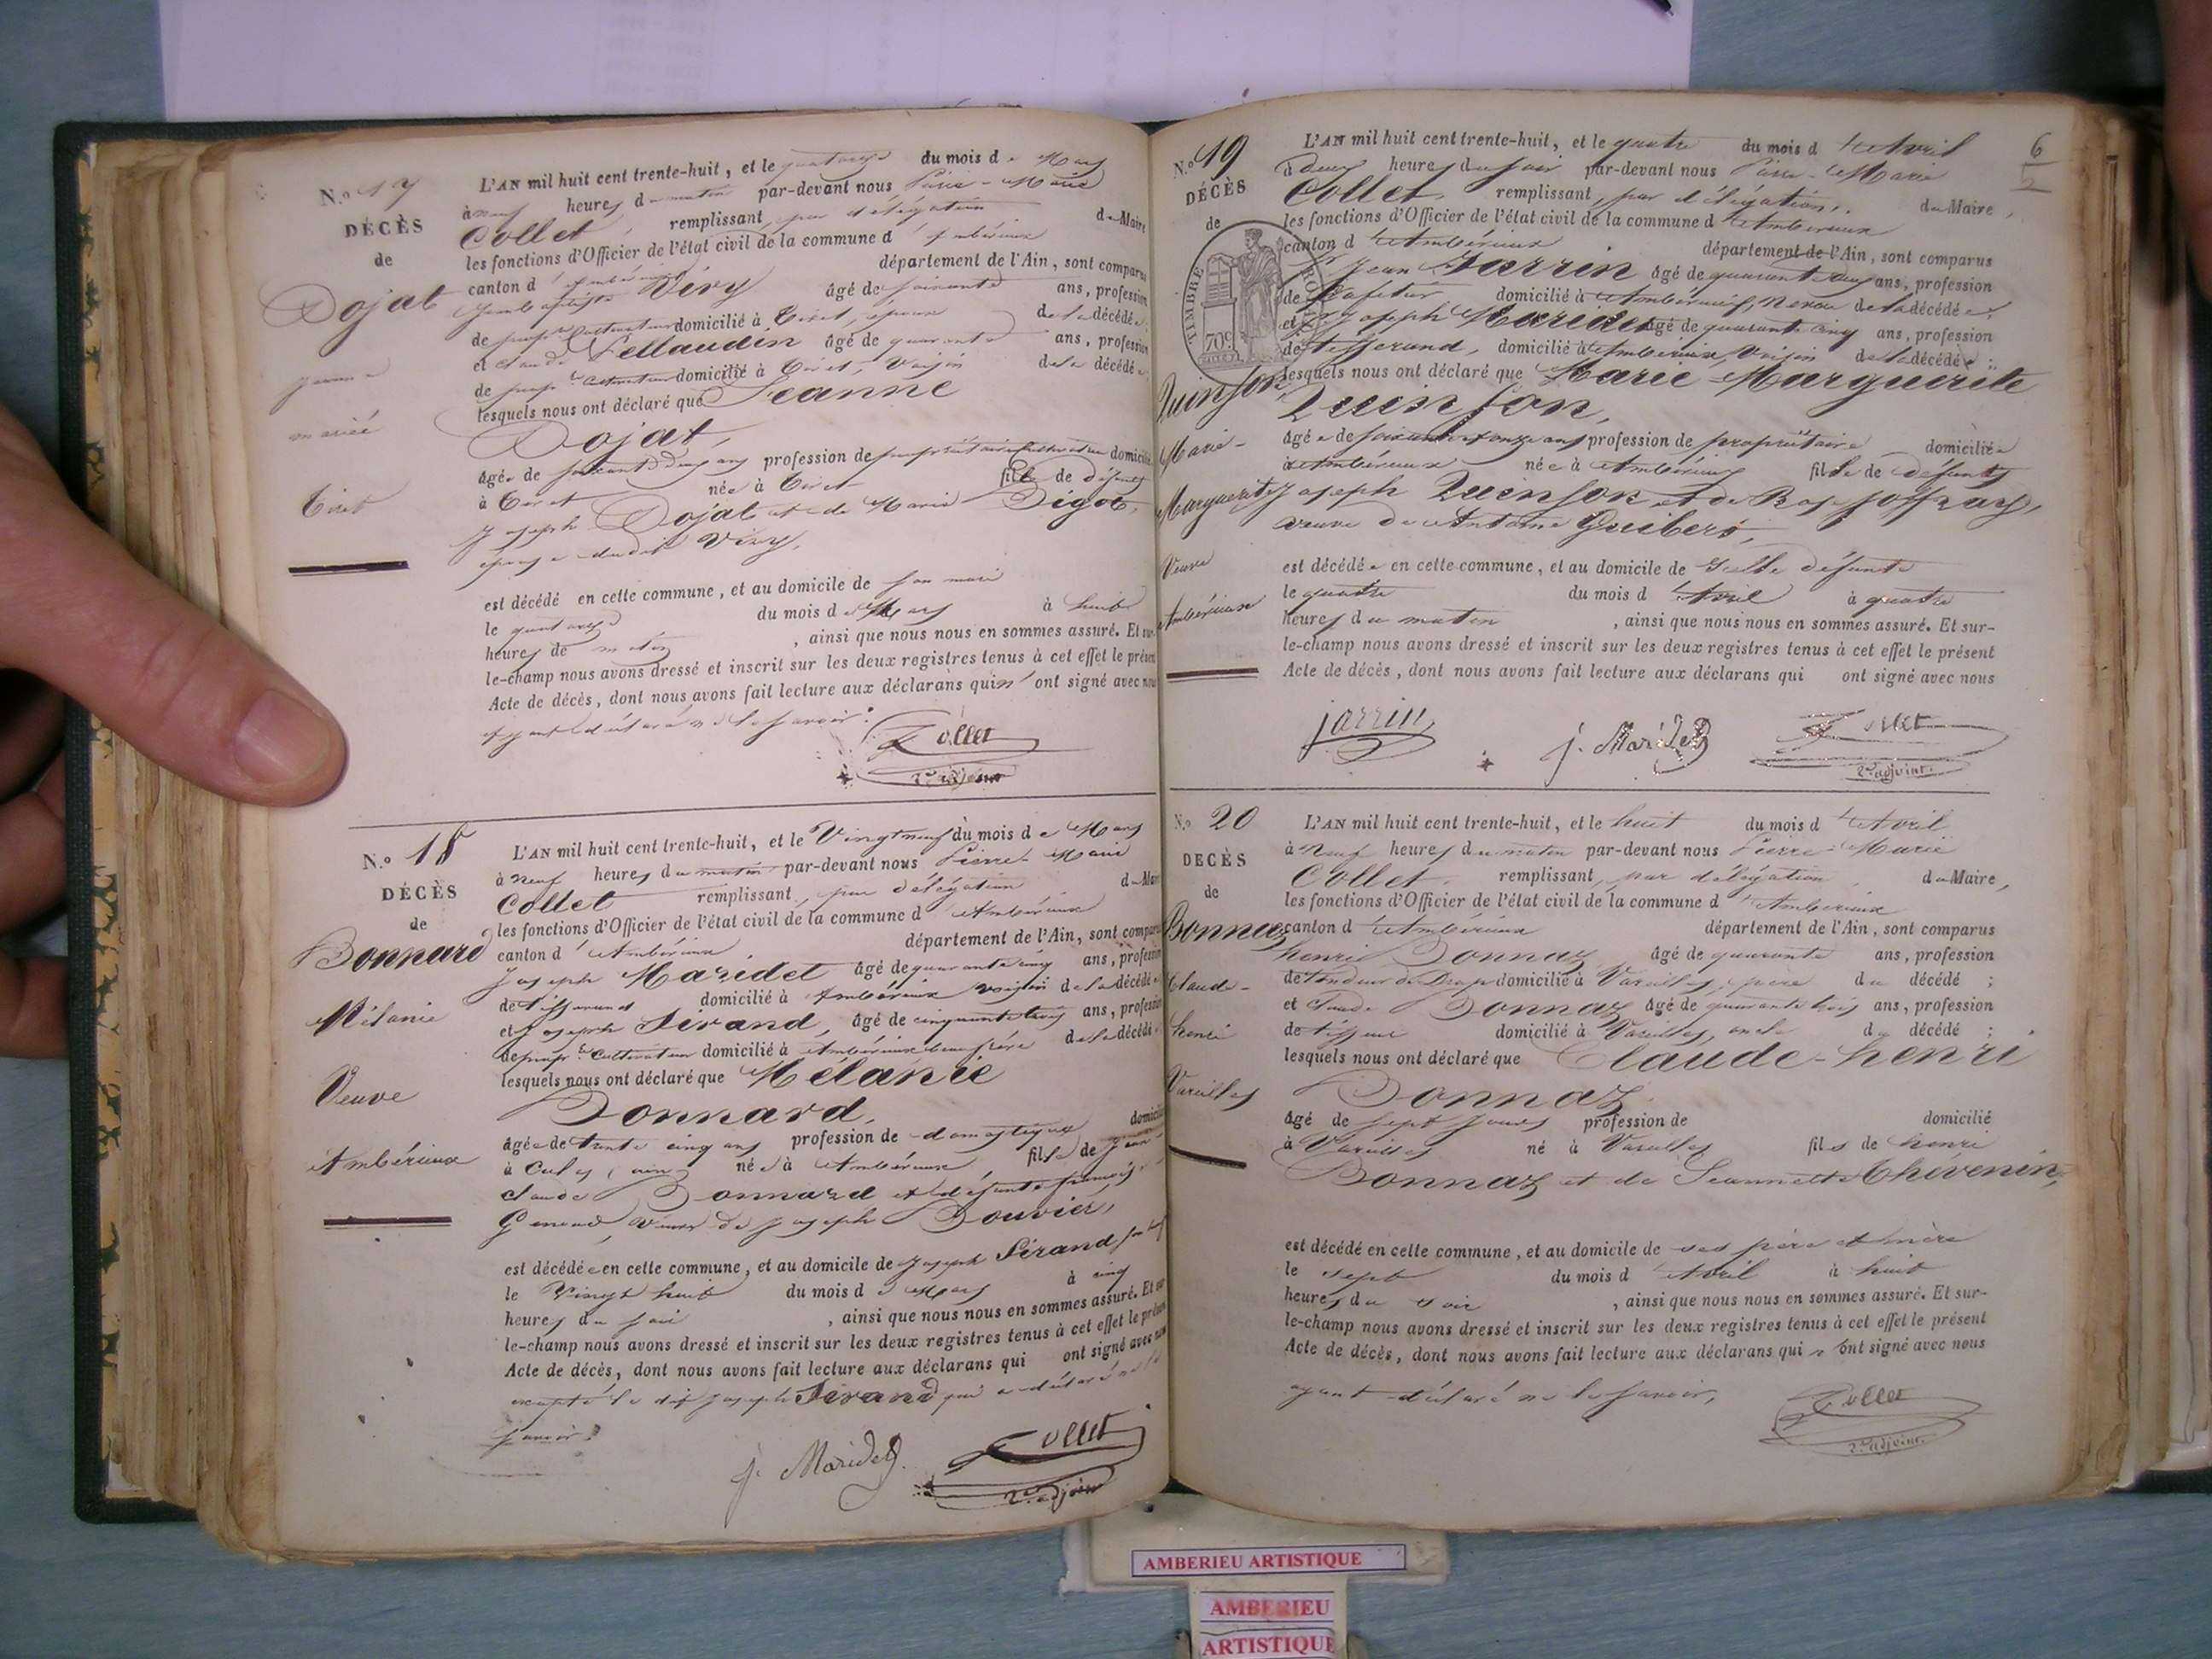 N.o 17
DÉCÈS
de
Dojat
Jeanne
mariée
Tiret
L'AN mil huit cent trente-huit, et le quatorze du mois de Mars
à neuf heures du matin par-devant nous Pierre-Marie
Collet, remplissant, par délégation du Maire
les fonctions d'Officier de l'état civil de la commune d'Ambérieux
canton d'Ambérieux département de l'Ain, sont comparus
Jean baptiste Véry âgé de soixante ans, profession
de propre cultivateur domicilié à Tiret, époux de la décédée
et claude Pellaudin âgé de quarante ans, profession
de propre cultivateur domicilié à Tiret, voisin de la décédée
lesquels nous ont déclaré que Jeanne
Dojat,
âgée de soixante deux ans profession de propriétaire cultivatrice domiciliée
à Tiret née à Tiret fille de défunts
Joseph Dojat et de Marie Bigot,
épouse dudit Véry,
est décédé en cette commune, et au domicile de son mari
le quatorze du mois de Mars à huit
heures de matin, ainsi que nous nous en sommes assuré. Et sur-
le-champ nous avons dressé et inscrit sur les deux registres tenus à cet effet le présent
Acte de décès, dont nous avons fait lecture aux déclarans qui n'ont signé avec nous
ayant déclaré ne le savoir.
Collet
2e adjoint
N.o 18
DÉCÈS
de
Bonnard
Mélanie
Veuve
Ambérieux
L'AN mil huit cent trente-huit, et le Vingt neuf du mois de Mars
à neuf heures du matin par-devant nous Pierre-Marie
Collet remplissant, par délégation du Maire
les fonctions d'Officier de l'état civil de la commune d'Ambérieux
canton d'Ambérieux département de l'Ain, sont comparus
Joseph Maridet âgé de quarante cinq ans, profession
de tisserand domicilié à Ambérieux voisin de la décédée
et Joseph Sirand, âgé de cinquante trois ans, profession
de propre cultivateur domicilié à Ambérieux beau frère de la décédée
lesquels nous ont déclaré que Mélanie
Bonnard,
âgée de trente cinq ans profession de domestique domiciliée
à (ain) née à Ambérieux fille de Jean-
claude Bonnard et défunte
veuve de Joseph Bouvier,
est décédée en cette commune, et au domicile de Joseph Sirand
le Vingt huit du mois de Mars à cinq
heures du soir, ainsi que nous nous en sommes assuré. Et sur-
le-champ nous avons dressé et inscrit sur les deux registres tenus à cet effet le présent
Acte de décès, dont nous avons fait lecture aux déclarans qui ont signé avec nous
excepté le dit joseph Sirand qui a déclaré ne le
savoir.
J. Maridet
Collet
2e adjoint
6
2
N.o 19
DÉCÈS
de
TIMBRE ROYAL
709
Quinson
Marie-
Marguerite
Veuve
Ambérieux
L'AN mil huit cent trente-huit, et le quatre du mois d'Avril
à deux heures du soir par-devant nous Pierre-Marie
Collet, remplissant, par délégation, du Maire,
les fonctions d'Officier de l'état civil de la commune d'Ambérieux
canton d'Ambérieux département de l'Ain, sont comparus
Jean Jarrin âgé de ans, profession
de Cafetier domicilié à Ambérieux, neveu de la décédée;
et Joseph Maridet âgé de quarante cinq ans, profession
de tisserand, domicilié à Ambérieux, voisin de la décédée;
lesquels nous ont déclaré que Marie-Marguerite
Quinson,
âgée de soixante et onze ans profession de propriétaire domiciliée
à Ambérieux née à Ambérieux fille de défunts
Joseph Quinson et de Rose Joffray,
veuve de Antoine Guibers,
est décédée en cette commune, et au domicile de la dite défunte
le quatre du mois d'Avril à quatre
heures du matin, ainsi que nous nous en sommes assuré. Et sur-
le-champ nous avons dressé et inscrit sur les deux registres tenus à cet effet le présent
Acte de décès, dont nous avons fait lecture aux déclarans qui ont signé avec nous
jarrin
J. Maridet
Collet
2e adjoint.
N.o 20
DÉCÈS
de
Bonnaz
Claude-
henri
Vareilles
L'AN mil huit cent trente-huit, et le huit du mois d'Avril
à neuf heures du matin par-devant nous Pierre-Marie
Collet, remplissant, par délégation, du Maire,
les fonctions d'Officier de l'état civil de la commune d'Ambérieux
canton d'Ambérieux département de l'Ain, sont comparus
henri Bonnaz âgé de quarante ans, profession
de tondeur de Drap domicilié à Vareilles, père du décédé;
et claude Bonnaz âgé de quarante trois ans, profession
de tisseur domicilié à Vareilles, oncle du décédé;
lesquels nous ont déclaré que Claude-henri
Bonnaz
âgé de sept jours profession de domicilié
à Vareilles né à Vareilles fils de henri
Bonnaz et de Jeannette Chévenin,
est décédé en cette commune, et au domicile de ses père et mère
le sept du mois d'Avril à huit
heures du soir, ainsi que nous nous en sommes assuré. Et sur-
le-champ nous avons dressé et inscrit sur les deux registres tenus à cet effet le présent
Acte de décès, dont nous avons fait lecture aux déclarans qui n'ont signé avec nous
ayant déclaré ne le savoir,
Collet
2e adjoint
AMBERIEU ARTISTIQUE
AMBERIEU
ARTISTIQUE